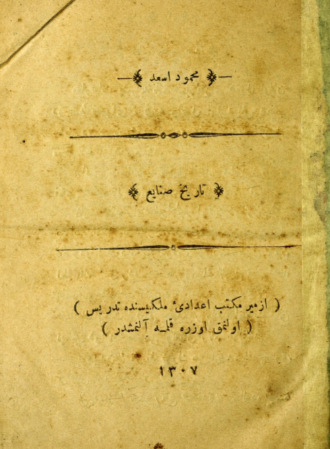 محمود اسعد
تاریخ صنایع
( ازمیر مکتب اعدادیٔ ملکیسنده تدریس )
( اولنمق اوزره قلمه آلنمشدر )
١٣٠٧